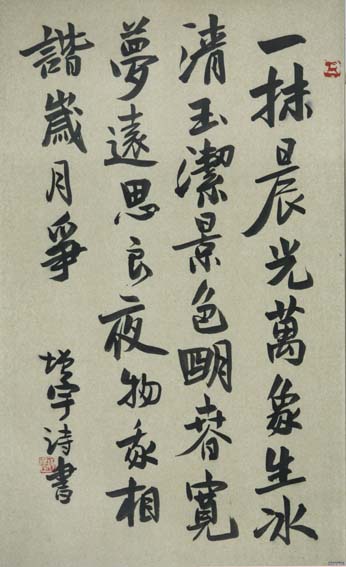 一抹晨光萬象生冰
清玉潔景色朙春寬
夢遠思良夜物我相
諧歲月爭
宇詩書